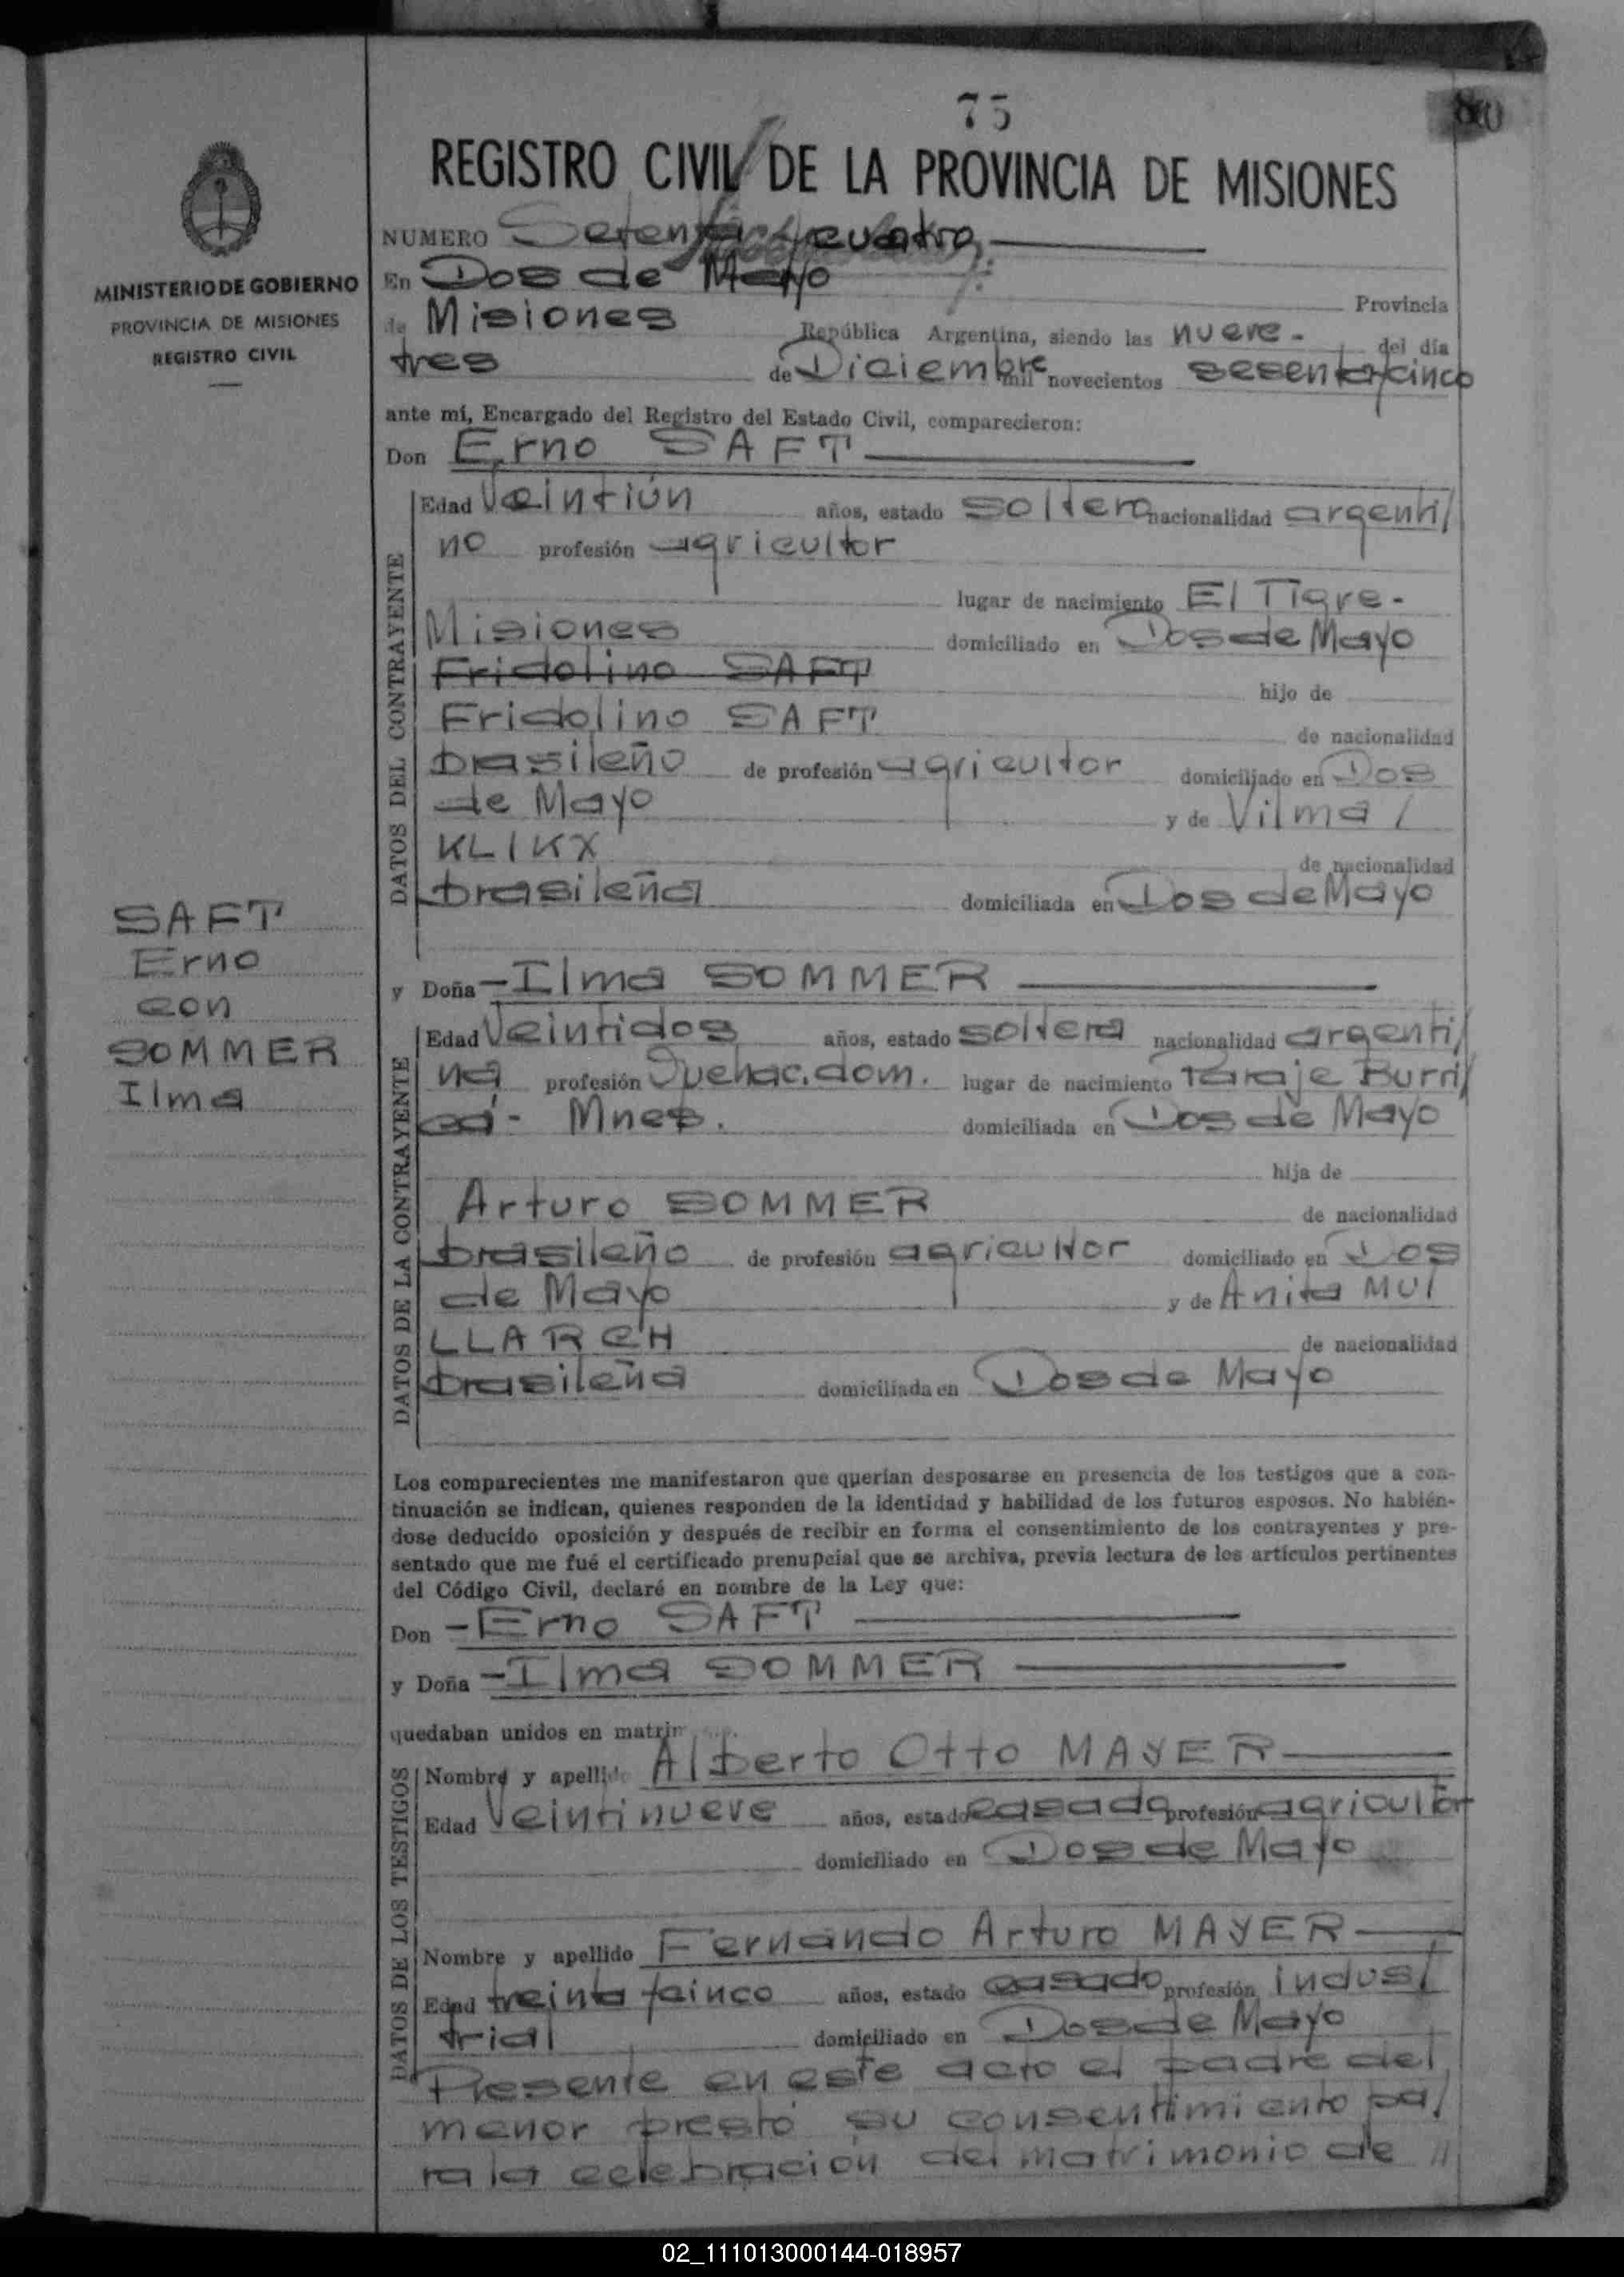 75
80
REGISTRO CIVIL DE LA PROVINCIA DE MISIONES
NUMERO Setenta y cuatro
En Dos de Mayo
Provincia
de Misiones República Argentina, siendo las nueve - del día
tres de Diciembre mil novecientos sesenta y cinco
ante mí, Encargado del Registro del Estado Civil, comparecieron:
Don Erno SAFT
MINISTERIO DE GOBIERNO
PROVINCIA DE MISIONES
REGISTRO CIVIL
SAFT
Erno
con
SOMMER
Ilma
DATOS DEL CONTRAYENTE
Edad Veintiún años, estado soltero nacionalidad argenti/
no profesión agricultor
lugar de nacimiento El Tigre -
Misiones domiciliado en Dos de Mayo
Fridolino SAFT hijo de
Fridolino SAFT de nacionalidad
brasileño de profesión agricultor domiciliado en Dos
de Mayo y de Vilma /
KLIKX de nacionalidad
brasileña domiciliada en Dos de Mayo
y Doña - Ilma SOMMER
DATOS DE LA CONTRAYENTE
Edad Veintidos años, estado soltera nacionalidad argenti/
na profesión Quehac. dom. lugar de nacimiento Paraje Burri/
cá - Mnes. domiciliada en Dos de Mayo
hija de
Arturo SOMMER de nacionalidad
brasileño de profesión agricultor domiciliado en Dos
de Mayo y de Anita MUI
LLARCH de nacionalidad
brasileña domiciliada en Dos de Mayo
Los comparecientes me manifestaron que querían desposarse en presencia de los testigos que a con-
tinuación se indican, quienes responden de la identidad y habilidad de los futuros esposos. No habién-
dose deducido oposición y después de recibir en forma el consentimiento de los contrayentes y pre-
sentado que me fué el certificado prenupcial que se archiva, previa lectura de los artículos pertinentes
del Código Civil, declaré en nombre de la Ley que:
Don - Erno SAFT
y Doña - Ilma SOMMER
quedaban unidos en matrim
DATOS DE LOS TESTIGOS
Nombre y apellido Alberto Otto MAYER
Edad Veintinueve años, estado casado profesión agricultor
domiciliado en Dos de Mayo
Nombre y apellido Fernando Arturo MAYER
Edad treinta y cinco años, estado casado profesión indus/
trial domiciliado en Dos de Mayo
Presente en este acto el padre del
menor prestó su consentimiento pa/
ra la celebración del matrimonio de //
02_111013000144-018957